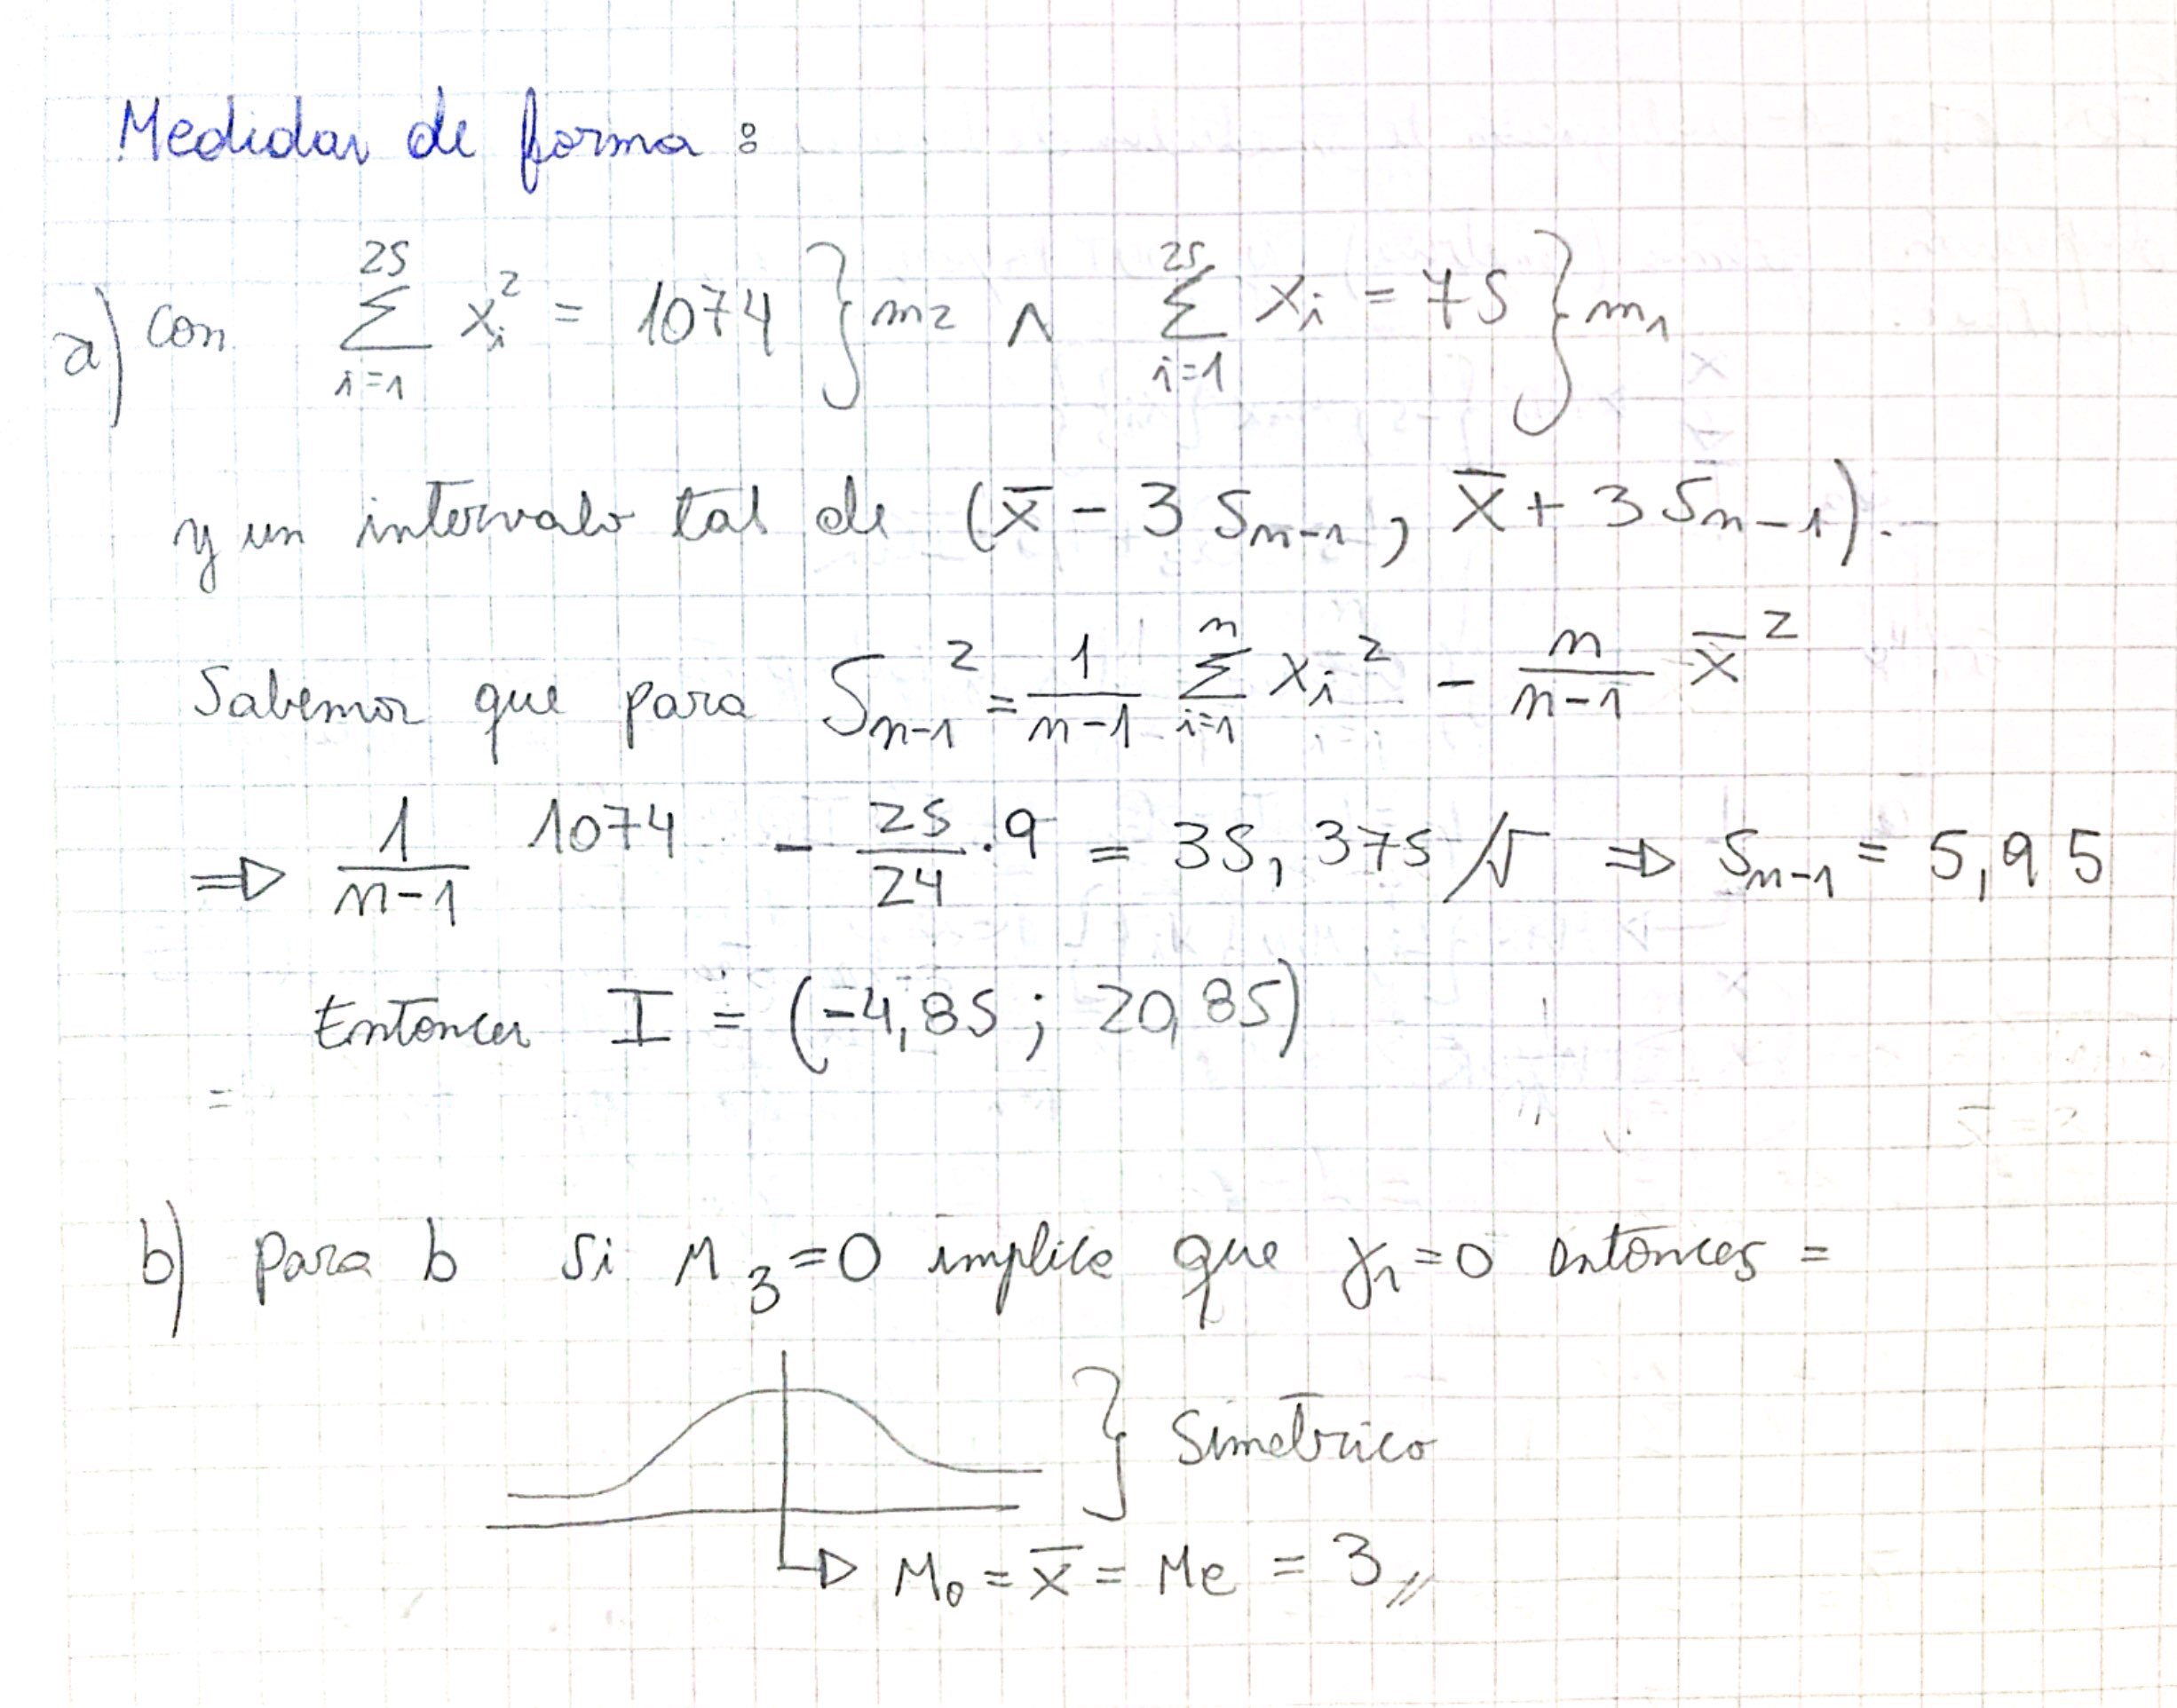 Medidas de forma:
a) con ∑_{i=1}^{25} x_i^2 = 1074 } m2 ∧ ∑_{i=1}^{25} x_i = 75 } m1
y un intervalo tal de (x̄ - 3 S_{n-1}, x̄ + 3 S_{n-1}).
Sabemos que para S_{n-1}^2 = \frac{1}{n-1} ∑_{i=1}^{n} x_i^2 - \frac{n}{n-1} x̄^2
⇒ \frac{1}{n-1} 1074 - \frac{25}{24} · 9 = 35,375 /√ ⇒ S_{n-1} = 5,95
Entonces I = (-4,85 ; 20,85)
=
b) para b si M_3 = 0 implica que γ_1 = 0 entonces =
} Simetrico
→ Mo = x̄ = Me = 3 //